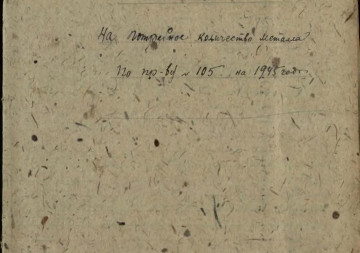 На потребное количество метала
По пр-ву № 105 на 1945 год.